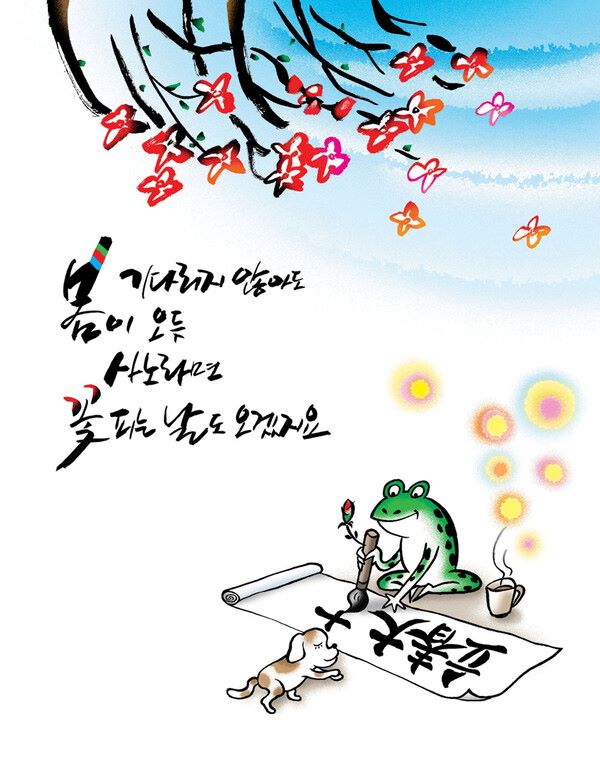 기다리지 않아도
봄이 오듯
사노라면
꽃 피는 날도 오겠지요
立春大